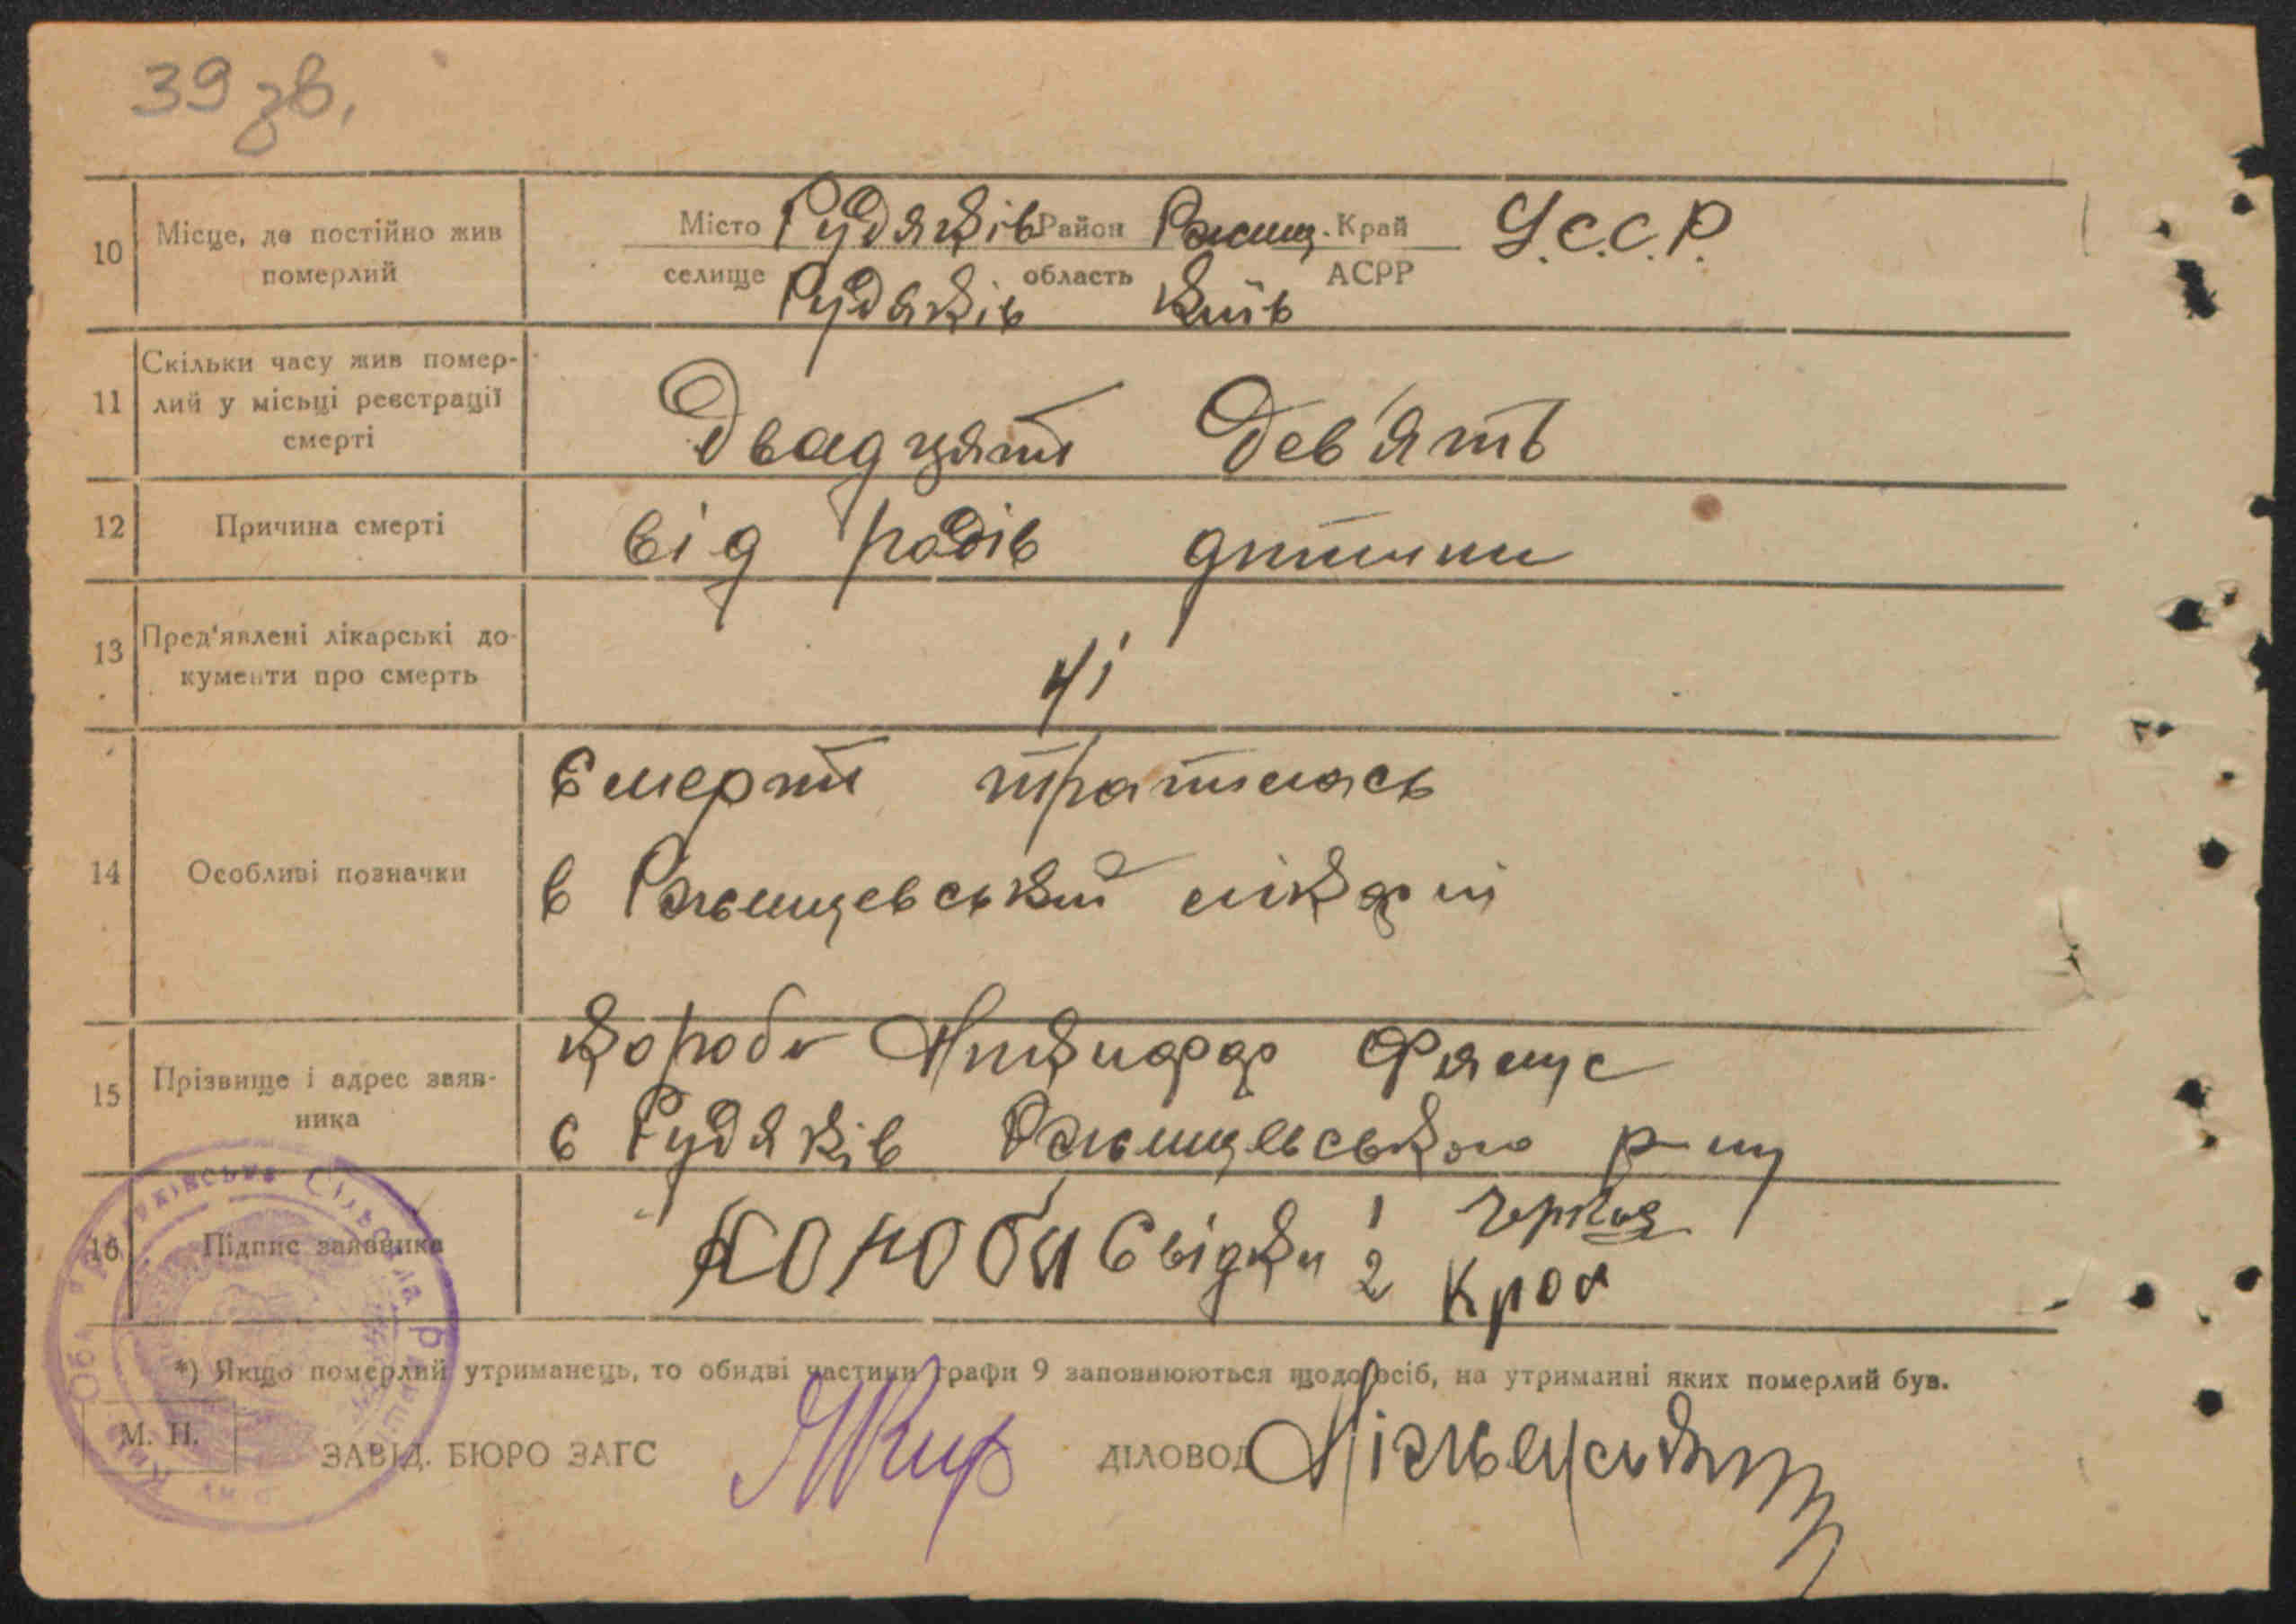 39 зв.
10 Місце, де постійно жив померлий
Місто Рудяків Район Ржищ. Край У.С.С.Р.
селище Рудяків область Київ АСРР
11 Скільки часу жив помер-
лий у місьці реєстрації
смерті
Двадцять Дев'ять
12 Причина смерті
від родів дитини
13 Пред'явлені лікарські до-
кументи про смерть
Ні
14 Особливі позначки
Смерть трапилась
в Ржищевській лікарні
15 Прізвище і адрес заяв-
ника
Короба Никифор
с Рудяків Ржищевського р-ну
16 Підпис заявника
Свідки 1
2
*) Якщо померлий утриманець, то обидві частини графи 9 заповнюються щодо осіб, на утриманні яких померлий був.
М. П.
ЗАВІД. БЮРО ЗАГС
ДІЛОВОД